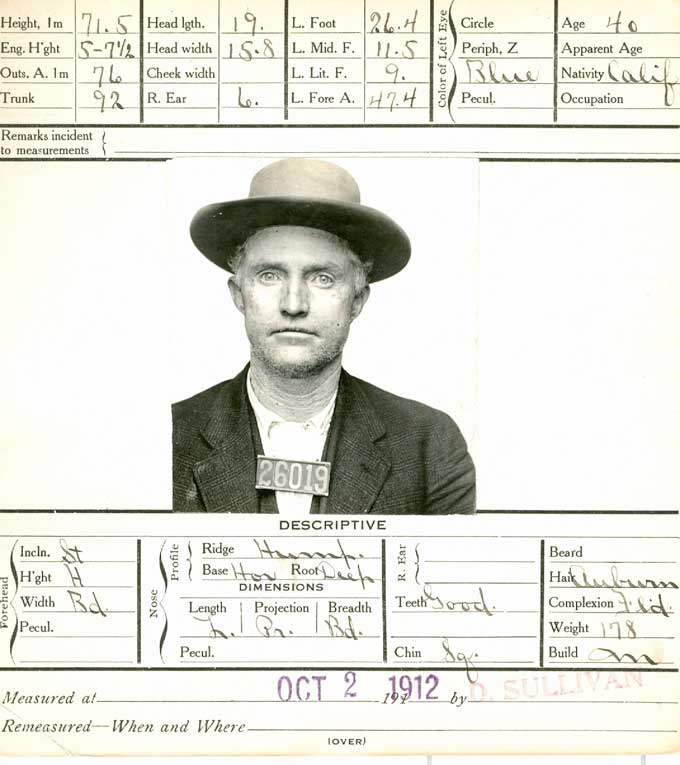 Height, 1m 71.5 Head lgth. 19. L. Foot 26.4 Circle Age 40
Eng. H'ght 5-7½ Head width 15.8 L. Mid. F. 11.5 Periph, Z Apparent Age
Outs. A. 1m 76 Cheek width L. Lit. F. 9. Blue Nativity Calif
Trunk 92 R. Ear 6. L. Fore A. 47.4 Pecul. Occupation
Color of Left Eye
Remarks incident
to measurements
26019
DESCRIPTIVE
Forehead
Incln. St
H'ght H
Width Bd.
Pecul.
Nose
Profile
Ridge Hump.
Base Hor Root Deep
DIMENSIONS
Length Projection Breadth
L. Pr. Bd.
Pecul.
R. Ear
Teeth Good.
Chin Sq.
Beard
Hair Auburn
Complexion Fld.
Weight 178
Build M
Measured at OCT 2 191 1912 by D. SULLIVAN
Remeasured—When and Where
(OVER)